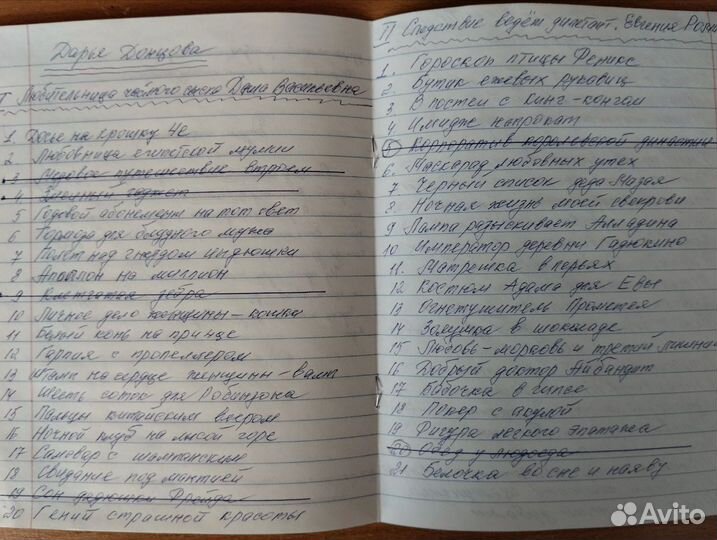 Дарья Донцова
I Любительница частного сыска Даша Васильевна
1. Досье на крошку Че
2 Любовница египетской мумии
3 Медовое путешествие втроем
4
5 Годовой абонемент на тот свет
6 Торпеда для блудного мужа
7 Полет над гнездом индюшки
8 Аполлон на миллион
9 Клетчатая зебра
10 Личное дело женщины-кошки
11 Белый конь на принце
12 Гарпия с пропеллером
13 Штамп на сердце женщины-вамп
14 Шесть соток для Робинзона
15 Пальцы китайским веером
16 Ночной клуб на лысой горе
17 Самовар с шампанским
18 Свидание под мантией
19 Сон дядюшки Фрейда
20 Гений страшной красоты
II Следствие ведёт дилетант. Евгения Рома
1. Гороскоп птицы Феникс
2. Бутик ежевых рукавиц
3 В постели с Кинг-конгом
4 Имидж напрокат
5 Корпоратив королевской династии
6. Маскарад любовных утех
7 Черный список деда Мазая
8 Ночная жизнь моей свекрови
9 Лампа разыскивает Алладина
10 Император деревни Гадюкино
11. Матрешка в перьях
12 Костюм Адама для Евы
13 Огнетушитель Прометея
14 Золушка в шоколаде
15 Любовь-морковь и третий лишний
16 Добрый доктор Айбандит
17 Бабочка в гипсе
18 Покер с акулой
19 Фигура легкого эпатажа
20 Обед у людоеда
21 Белочка во сне и наяву
Avito